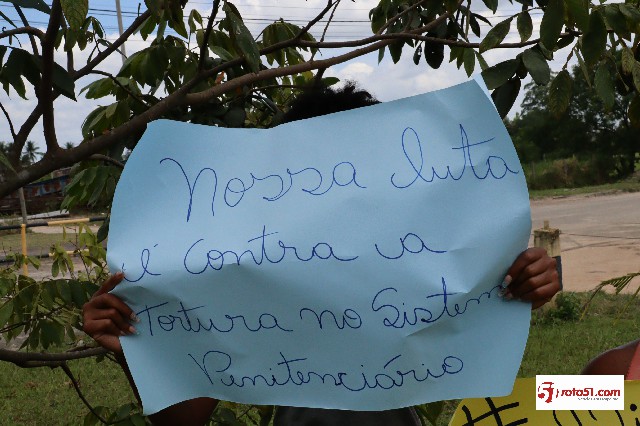 Nossa luta
é contra a
tortura no Sistema
Penitenciário
roto51.com
#